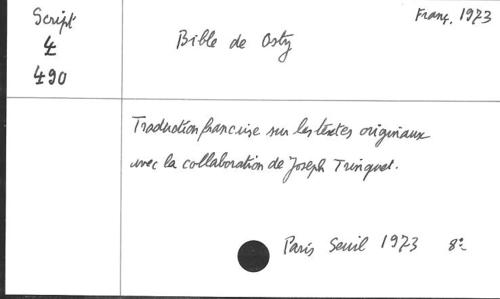 Script
4
490
Franç. 1973
Bible de Osty
Traduction française sur les textes originaux
avec la collaboration de Joseph Trinquet.
Paris Seuil 1973 8º